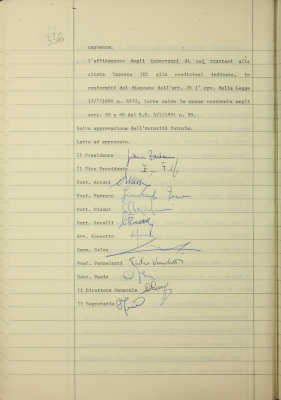 336
capienza;
. l'affidamento degli interventi di cui trattasi alla
citata Impresa IBI alle condizioni indicate, in
conformità del disposto dell'art. 26 I° cpv. della Legge
17/7/1890 n. 6972, fatte salve le norme contenute negli
artt. 59 e 60 del R.D. 5/2/1891 n. 99.
Salva approvazione dell'Autorità Tutoria.
Letto ed approvato.
Il Presidente
Il Vice Presidente
Dott.
Prof. Ferrero
Dott.
Dott.
Avv. Rossotto
Geom. Salza
Prof. Vernoletti
Dott.
Il Direttore Generale
Il Segretario